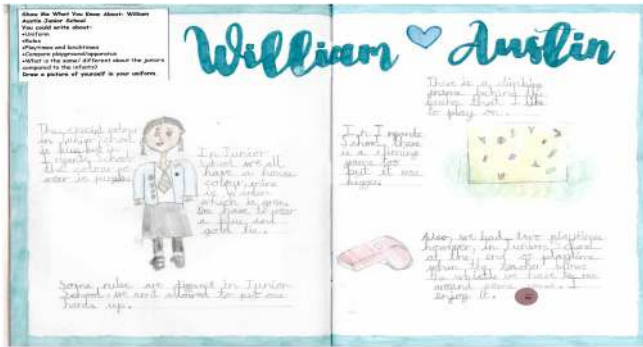 Show Me What You Know About: William
Austin Junior School
You could write about:
•Uniform
•Rules
•Playtimes and lunchtimes
•Compare playground/apparatus
•What is the same/ different about the juniors
compared to the infants?
Draw a picture of yourself in your uniform.
William Austin
The special colour
in Junior School
is blue but in
Infants School
the colour we
wear is purple.
In Junior
School we all
have a house
colour, mine
is
which is green.
We have to wear
a blue and
gold tie.
Some rules are different in Junior
School, we aren't allowed to put our
hands up.
There is a climbing
frame behind the
that I like
to play on.
In Infants
School, there
is a climbing
frame too
but it was
bigger.
Also, we had two playtimes
however, in Juniors,
at the end of playtime
when the teacher blows
the whistle we have to
around . I
enjoy it.